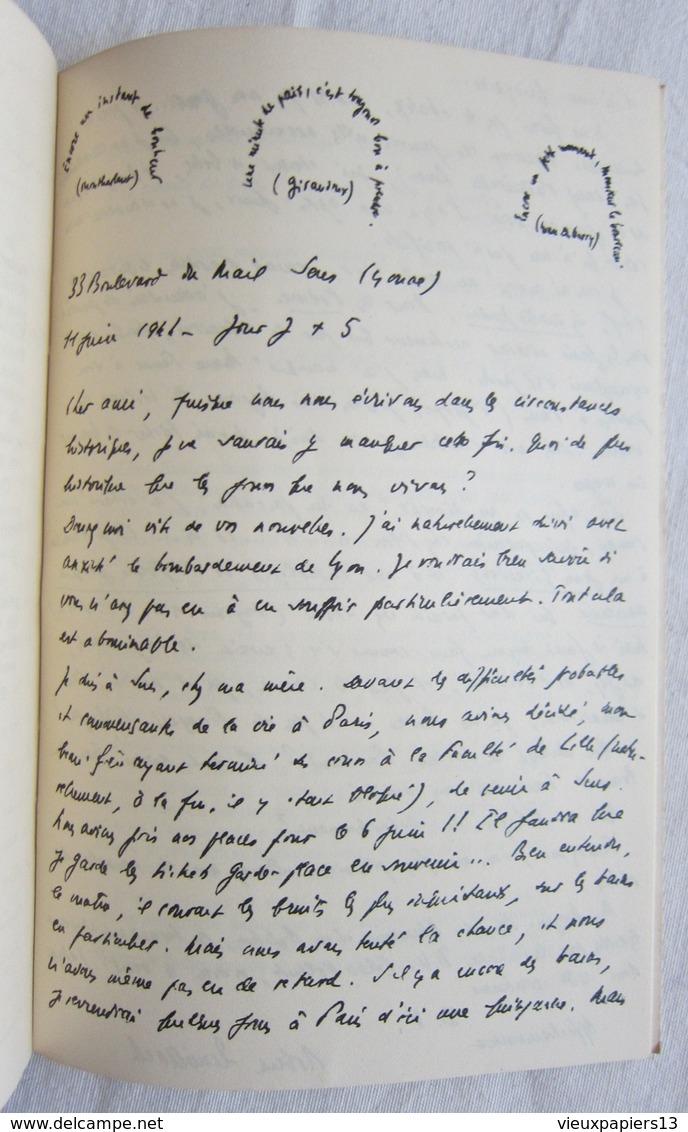 Encore un instant de bonheur
(Montherlant)
une minute de paix, c'est toujours bon à prendre.
(Giraudoux)
Encore un petit moment, monsieur le bourreau.
(Mme du Barry)
33 Boulevard du Mail Sens (Yonne)
11 juin 1944 - Jour J + 5
Cher ami, puisque nous nous écrivons dans les circonstances
historiques, je ne saurais y manquer cette fois. Quoi de plus
historique que les jours que nous vivons ?
Donnez moi vite de vos nouvelles. J'ai naturellement suivi avec
anxiété le bombardement de Lyon. Je voudrais bien savoir si
vous n'avez pas eu à en souffrir particulièrement. Tout cela
est abominable.
Je suis à Sens, chez ma mère. Devant les difficultés probables
et commençantes de la vie à Paris, nous avions décidé, mon
beau-frère ayant terminé ses cours à la Faculté de Lille (natu-
rellement, à la fin, il y était bloqué), de venir à Sens.
Nous avions pris nos places pour le 6 juin !! Il faudra que
je garde les tickets garde-place en souvenir... Bien entendu,
le matin, il courait les bruits les plus inquiétants, sur les trains
en particulier. Mais nous avons tenté la chance, et nous
n'avons même pas eu de retard. S'il y a encore des trains,
je reviendrai quelques jours à Paris d'ici une quinzaine. Mais
www.delcampe.net
vieuxpapiers13